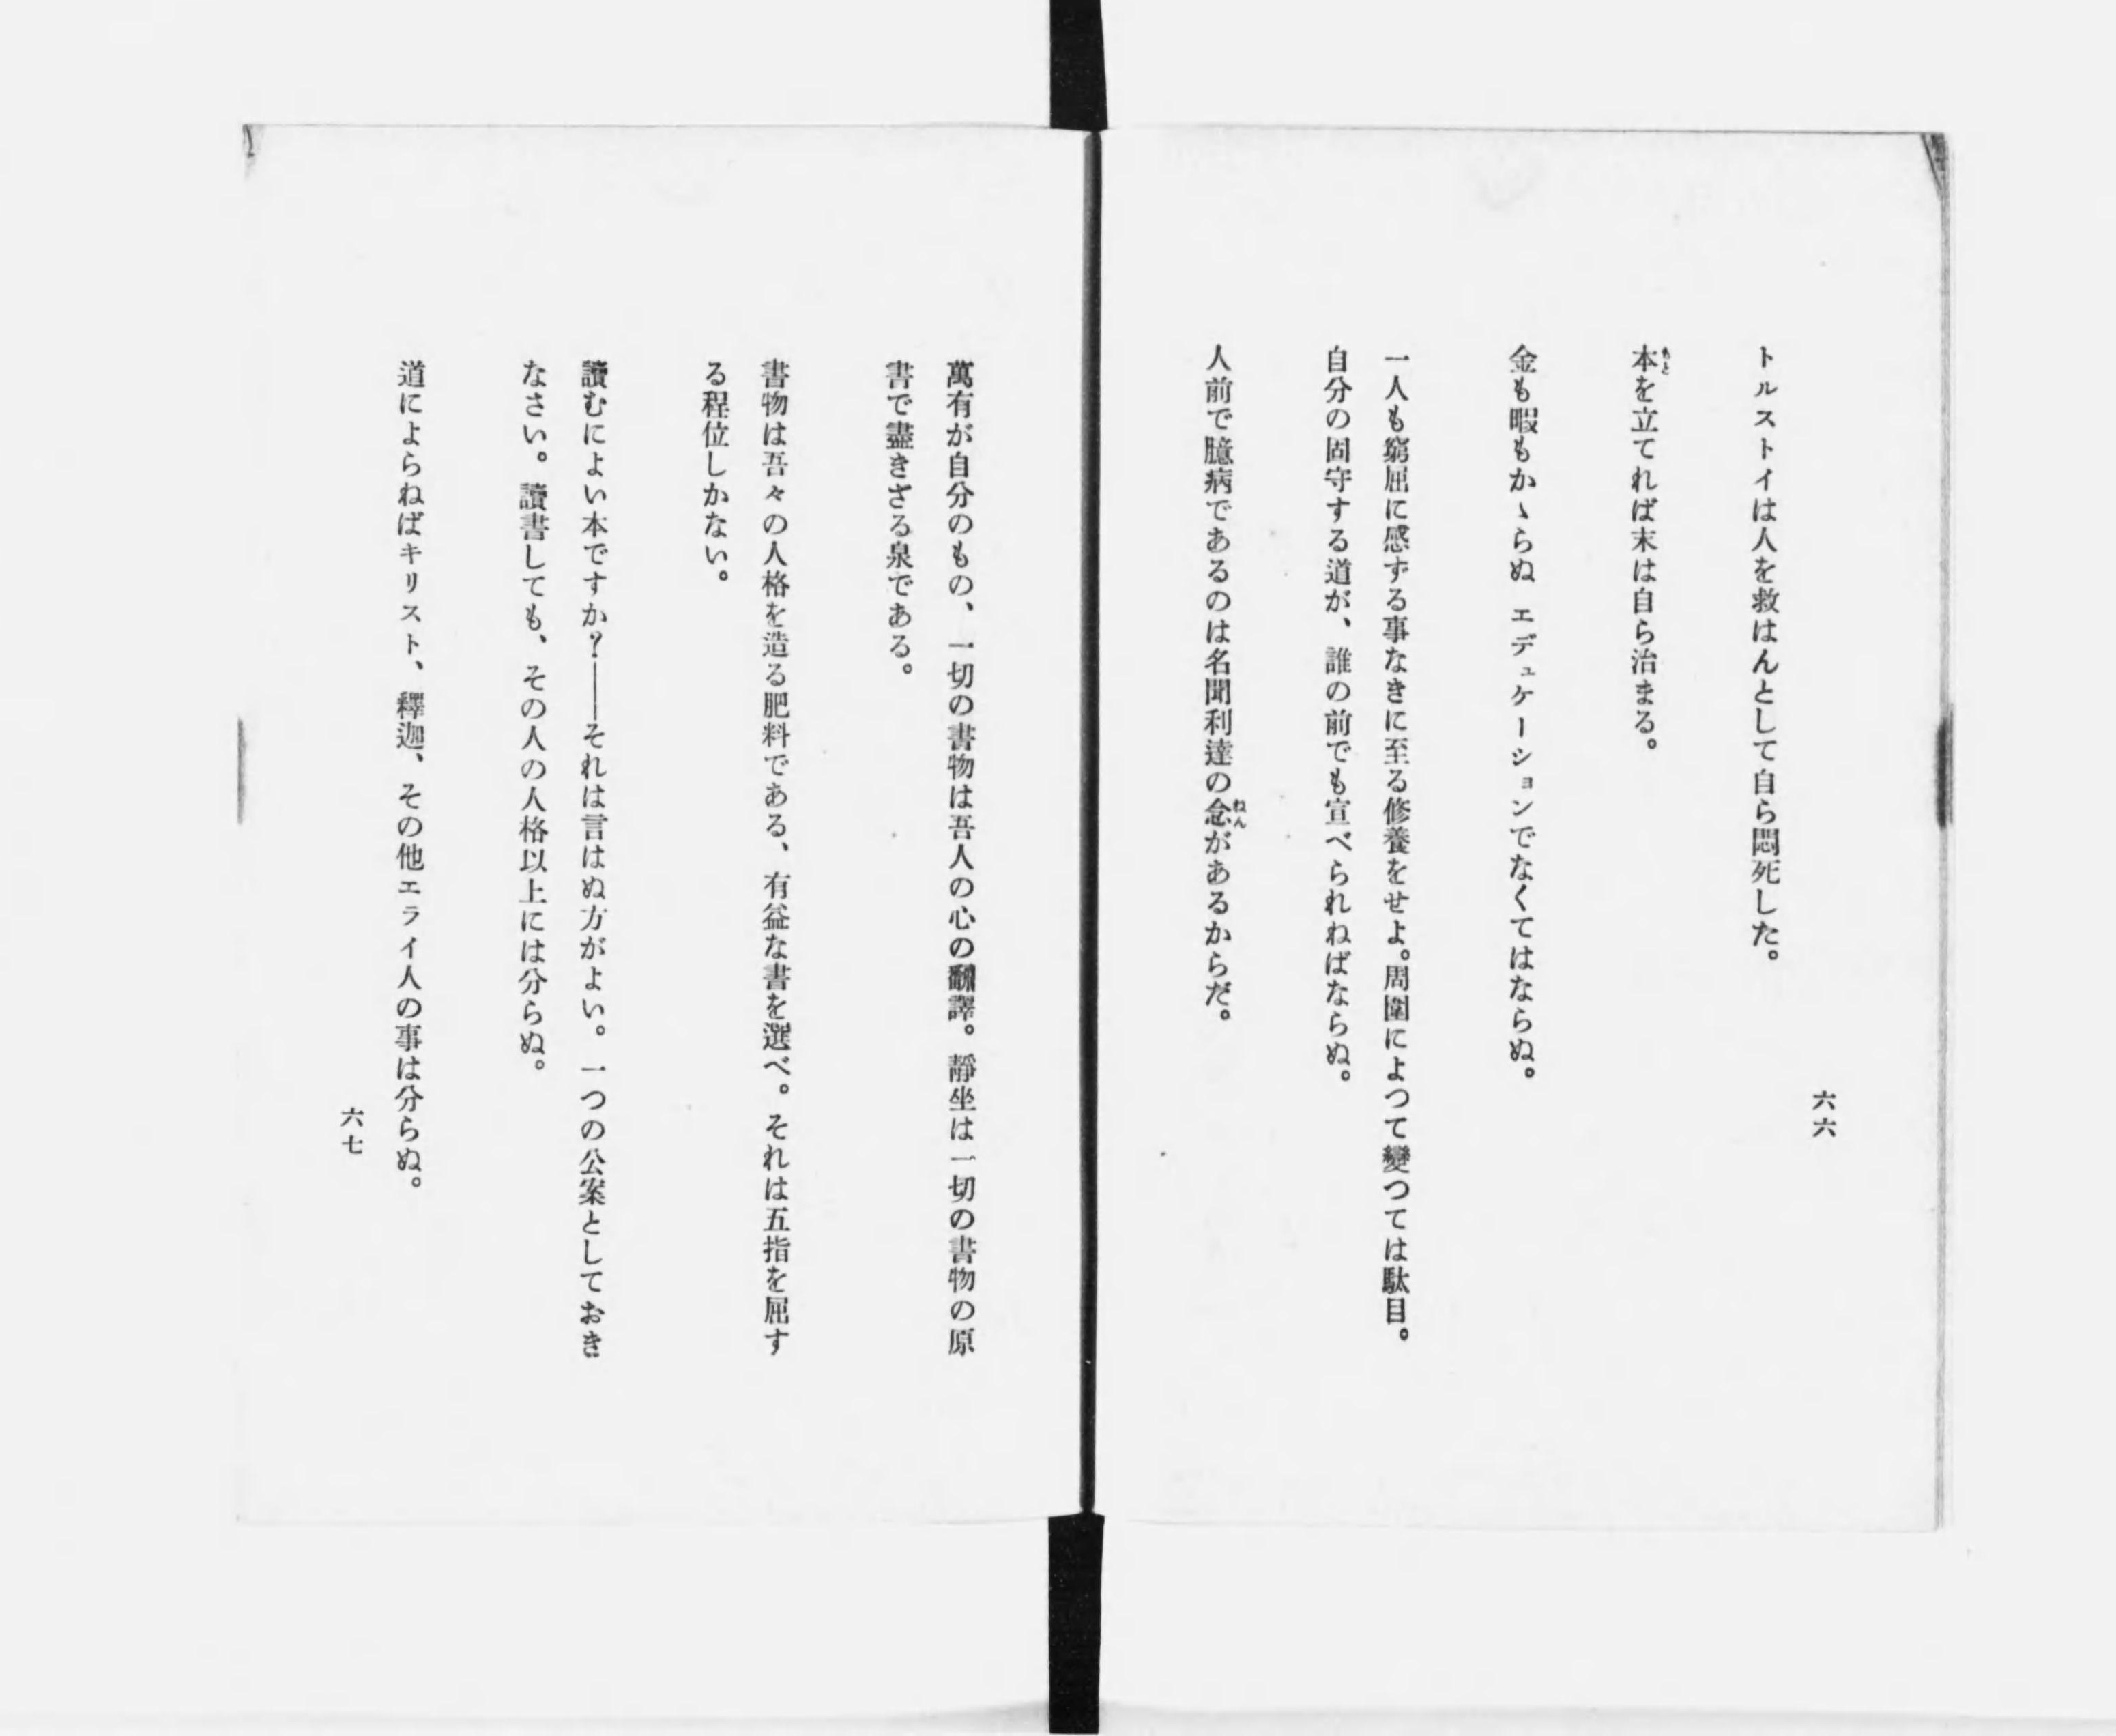 六六
トルストイは人を救はんとして自ら悶死した。
本を立てれば末は自ら治まる。
もと
金も暇もかゝらぬエデュケーションでなくてはならぬ。
一人も窮屈に感ずる事なきに至る修養をせよ。周圍によつて變つては駄目。
自分の固守する道が、誰の前でも宣べられねばならぬ。
人前で臆病であるのは名聞利達の念があるからだ。
ねん
萬有が自分のもの、一切の書物は吾人の心の翻譯。靜坐は一切の書物の原
書で盡きざる泉である。
書物は吾々の人格を造る肥料である、有益な書を選べ。それは五指を屈す
る程位しかない。
讀むによい本ですか?――それは言はぬ方がよい。一つの公案としておき
なさい。讀書しても、その人の人格以上には分らぬ。
道によらねばキリスト、釋迦、その他エライ人の事は分らぬ。
六七